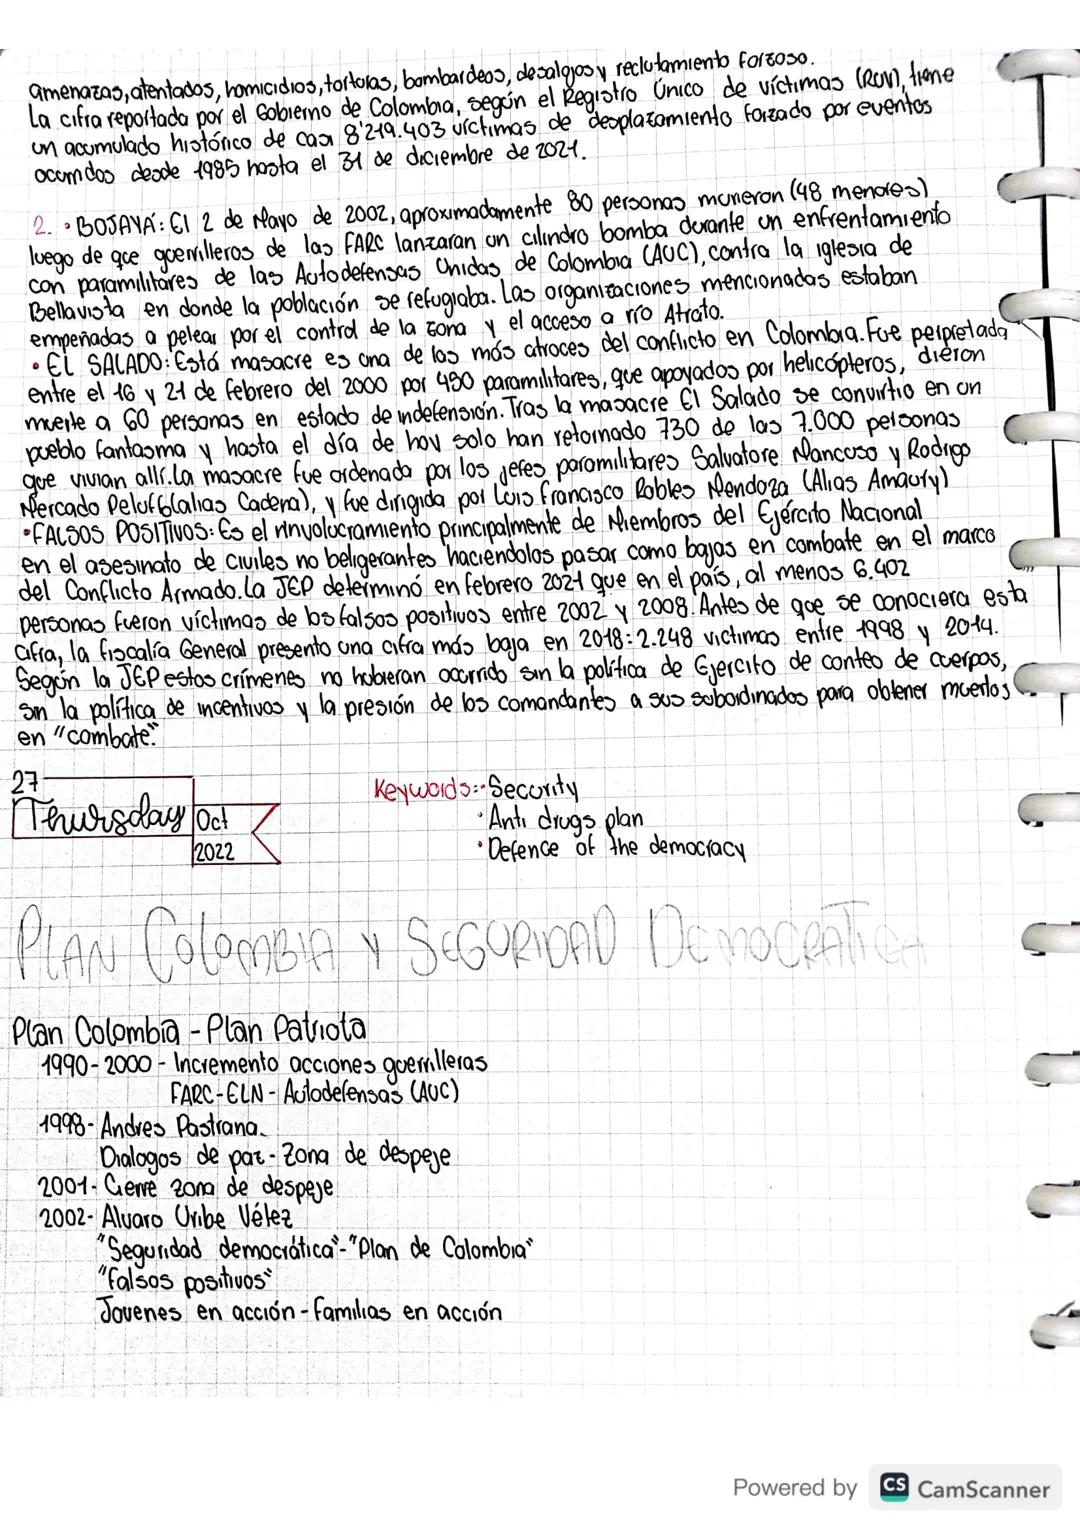 amenazas, atentados, homicidios, torturas, bombardeos, desalojos y reclutamiento forzoso.
La cifra reportada por el Gobierno de Colombia, según el Registro Único de víctimas (RUV), tiene
un acumulado histórico de casi 8'219.403 víctimas de desplazamiento forzado por eventos
ocurridos desde 1985 hasta el 31 de diciembre de 2021.
2. • BOJAYÁ: El 2 de Mayo de 2002, aproximadamente 80 personas murieron (48 menores)
luego de que guerrilleros de las FARC lanzaran un cilindro bomba durante un enfrentamiento
con paramilitares de las Autodefensas Unidas de Colombia (AUC), contra la iglesia de
Bellavista en donde la población se refugiaba. Las organizaciones mencionadas estaban
empeñadas a pelear por el control de la zona y el acceso a río Atrato.
• EL SALADO: Está masacre es una de las más atroces del conflicto en Colombia. Fue perpretada
entre el 16 y 21 de febrero del 2000 por 490 paramilitares, que apoyados por helicópteros, dieron
muerte a 60 personas en estado de indefensión. Tras la masacre El Salado se convirtio en un
pueblo fantasma y hasta el día de hoy solo han retornado 730 de las 7.000 personas
que vivian allí. La masacre fue ordenada por los jefes paramilitares Salvatore Mancuso y Rodrigo
Mercado Peluff (alias Cadena), y fue dirigida por Luis Francisco Robles Mendoza (Alias Amaury)
• FALSOS POSITIVOS: Es el involucramiento principalmente de Miembros del Ejército Nacional
en el asesinato de civiles no beligerantes haciendolos pasar como bajas en combate en el marco
del Conflicto Armado. La JEP determinó en febrero 2021 que en el país, al menos 6.402
personas fueron víctimas de los falsos positivos entre 2002 y 2008. Antes de que se conociera esta
cifra, la fiscalía General presento una cifra más baja en 2018: 2.248 victimas entre 1998 y 2014.
Según la JEP estos crímenes no hubieran ocurrido sin la política de Ejercito de conteo de cuerpos,
sin la política de incentivos y la presión de los comandantes a sus subordinados para obtener muertos
en "combate".
27
Thursday Oct
2022
Keywords: • Security
• Anti drugs plan
• Defence of the democracy
PLAN COLOMBIA Y SEGURIDAD DEMOCRATICA
Plan Colombia - Plan Patriota
1990-2000 - Incremento acciones guerrilleras
FARC-ELN - Autodefensas (AUC)
1998- Andres Pastrana.
Dialogos de paz - Zona de despeje
2001- Cierre zona de despeje
2002- Alvaro Uribe Vélez
"Seguridad democrática" - "Plan de Colombia"
"Falsos positivos"
Jovenes en acción - Familias en acción
Powered by CS CamScanner